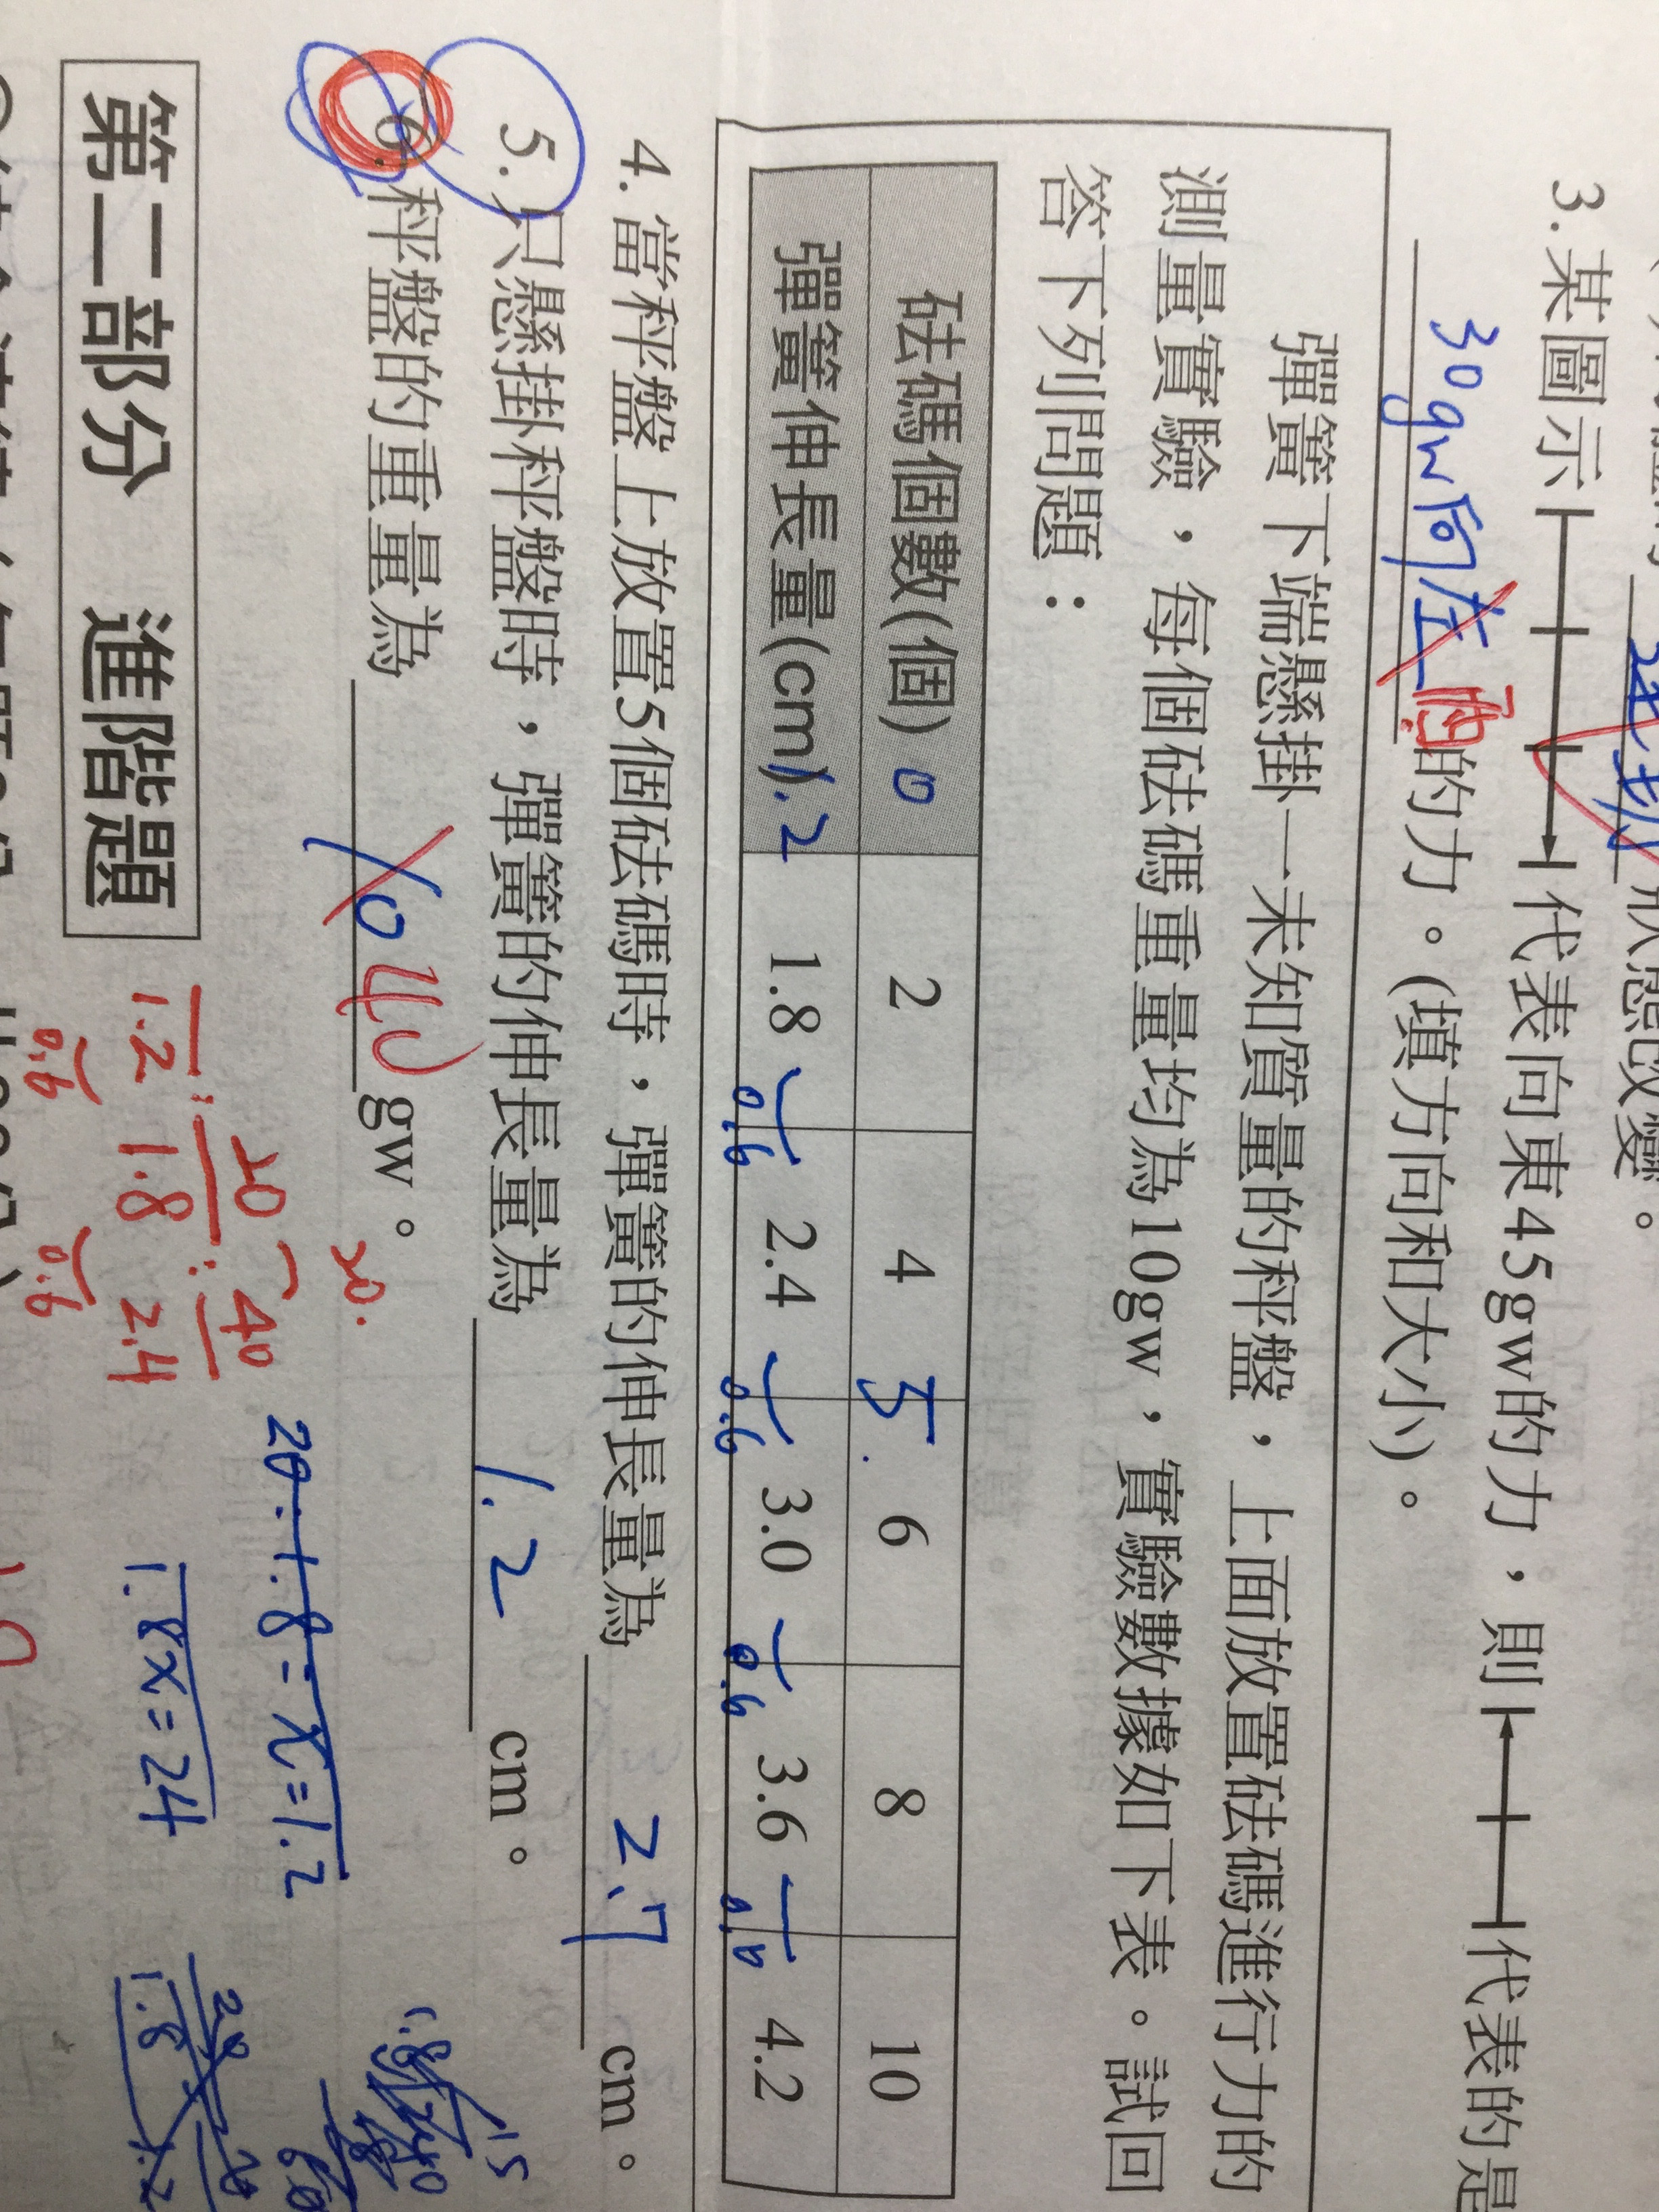 狀態改變。
3.某圖示 代表向東45gw的力,則 代表的是
30gw向左 西 的力。(填方向和大小)。
彈簧下端懸掛一未知質量的秤盤,上面放置砝碼進行力的
測量實驗,每個砝碼重量均為10gw,實驗數據如下表。試回
答下列問題:
砝碼個數(個) 0 2 4 5 6 8 10
彈簧伸長量(cm) 1.2 1.8 2.4 3.0 3.6 4.2
0.6 0.6 0.6
4.當秤盤上放置5個砝碼時,彈簧的伸長量為 2.7 cm。
5.只懸掛秤盤時,彈簧的伸長量為 1.2 cm。
6.秤盤的重量為 40 gw。
20.
20 40
1.2 : 1.8 : 2.4
0.6 0.6
20.1.8=x=1.2
1.8x=24
15
第二部分 進階題